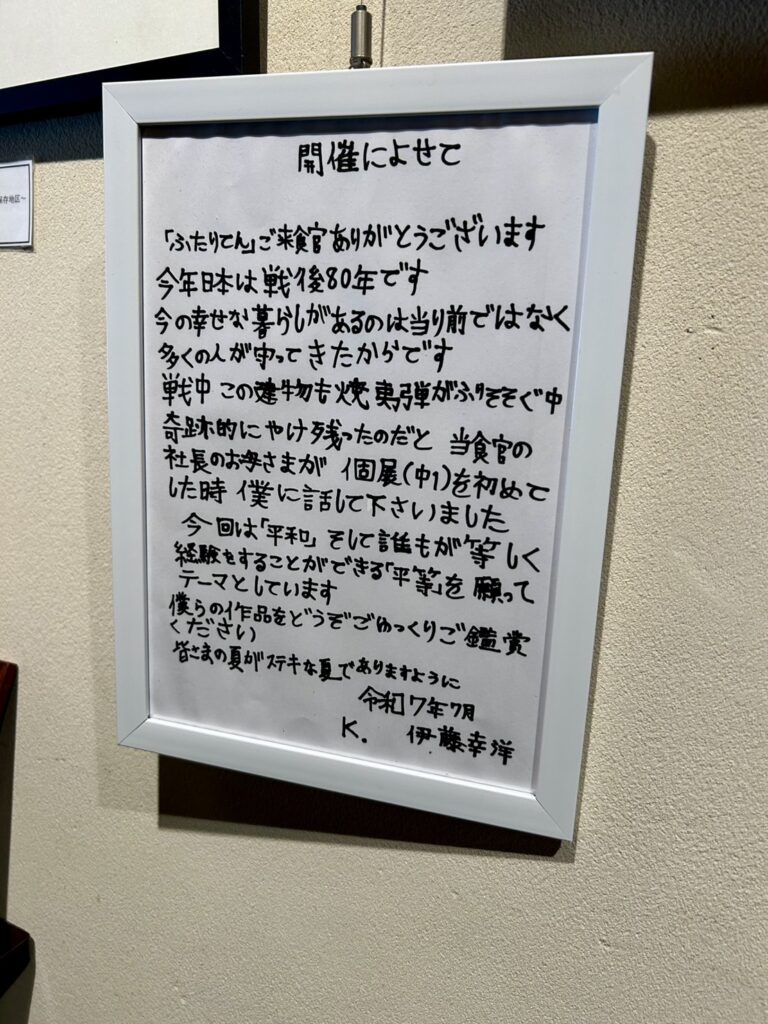 開催によせて
「ふたりてん」ご来館ありがとうございます
今年日本は戦後80年です
今の幸せな暮らしがあるのは当り前ではなく
多くの人が守ってきたからです
戦中 この建物も焼夷弾がふりそそぐ中
奇跡的にやけ残ったのだと 当館の
社長のお母さまが 個展(中1)を初めて
した時 僕に話して下さいました
今回は「平和」 そして誰もが等しく
経験をすることができる「平等」を願って
テーマとしています
僕らの作品をどうぞごゆっくりご鑑賞
ください
皆さまの夏がステキな夏でありますように
令和7年7月
K. 伊藤幸洋
保存地区〜